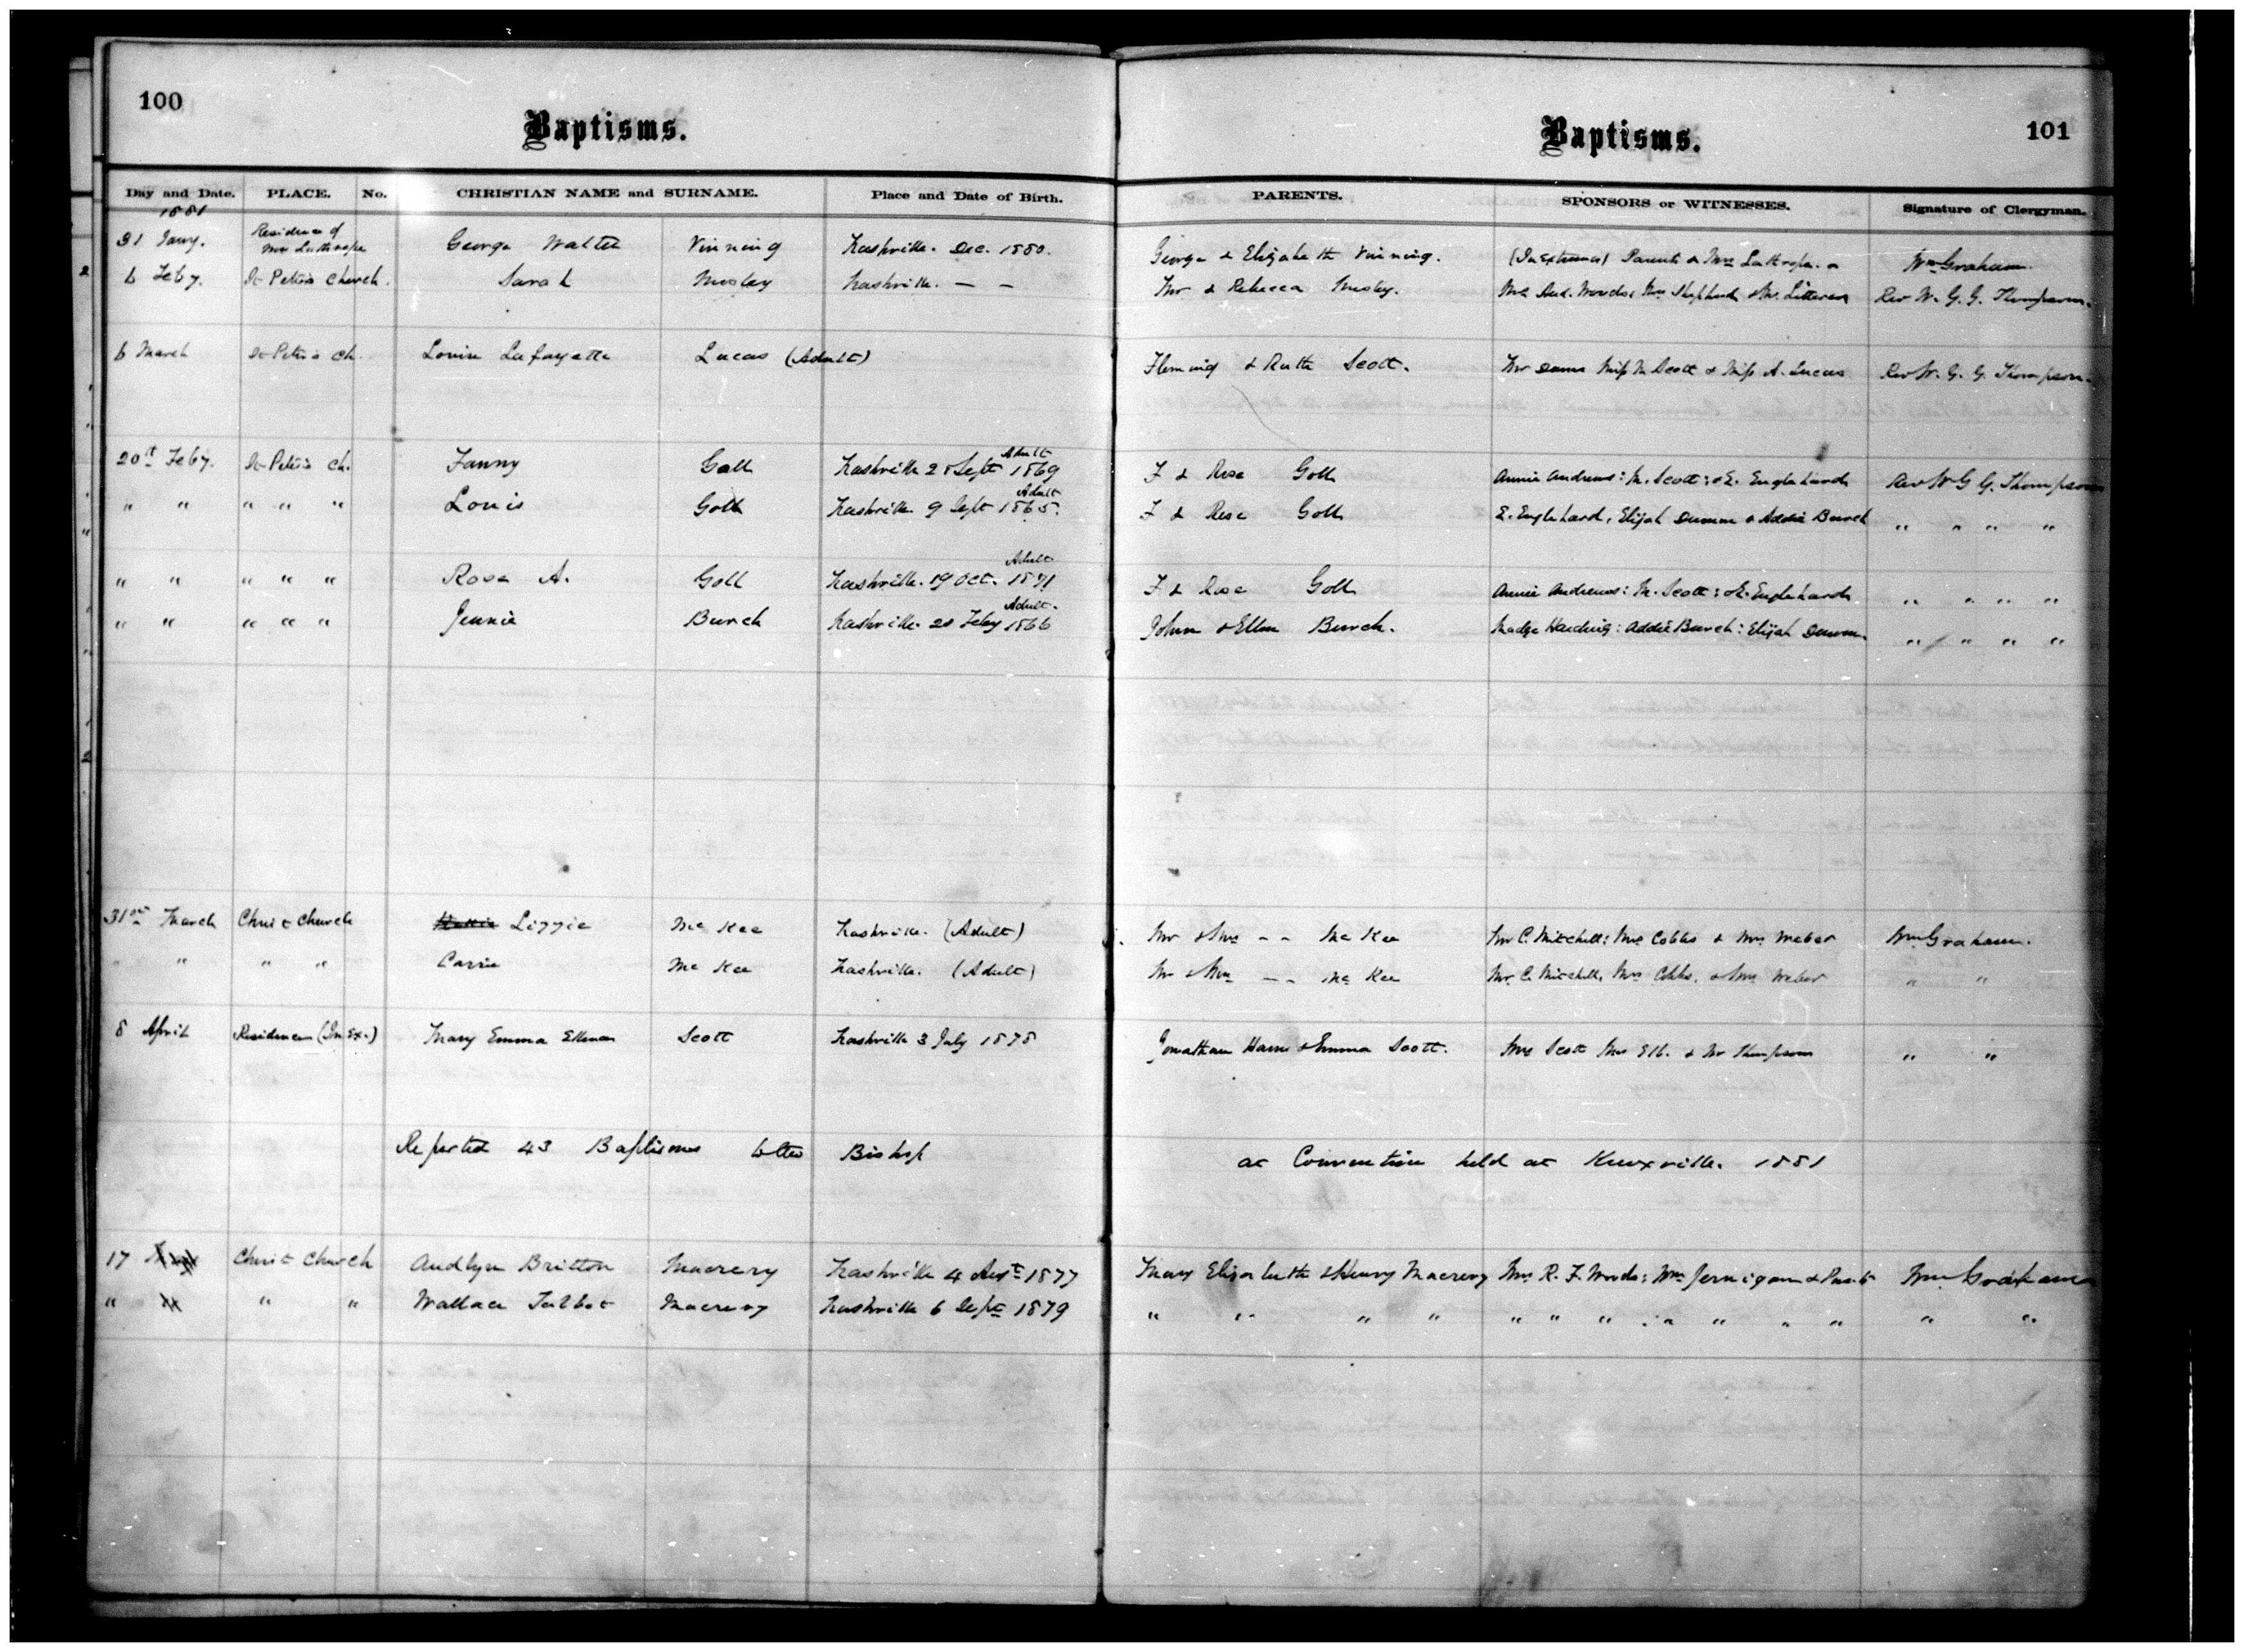 100
Baptisms.
Day and Date. PLACE. No. CHRISTIAN NAME and SURNAME. Place and Date of Birth.
1881
31 Jany. Residence of Mrs Lathrope George Walter Vinning Nashville. Dec. 1880.
6 Feby. St Peter's Church. Sarah Mosley Nashville. — —
6 March St Peter's Ch. Lafayette Lucas (Adult)
20th Feby. St Peter's Ch. Fanny Goll Nashville 28 Sept 1869 Adult
" " " " " Louis Goll Nashville 9 Sept 1865. Adult
" " " " " Rosa A. Goll Nashville. 19 Oct. 1871 Adult
" " " " " Jennie Burch Nashville. 20 Feby 1866 Adult.
31st March Christ Church Lizzie McKee Nashville. (Adult)
" " " " Carrie McKee Nashville. (Adult)
8 April Residence (In Ex.) Mary Emma Scott Nashville 3 July 1878
Reported 43 Baptisms to the Bishop
17 Christ Church Audlyn Britton Macrery Nashville 4 Augt 1877
" " " Wallace Talbot Macrery Nashville 6 Sept 1879
Baptisms. 101
PARENTS. SPONSORS or WITNESSES. Signature of Clergyman.
George & Elizabeth Vinning. (In Extremis) Parents & Mrs Lathrope. Wm Graham.
Mr & Rebecca Mosley. Rev W. G. G. Thompson.
Fleming & Ruth Scott. Miss M Scott & Miss A. Lucas Rev W. G. G. Thompson.
F & Rose Goll Annie Andrews: M. Scott: & E. Englehard Rev W G G. Thompson
F & Rose Goll E. Englehard, Elijah Dunnn & Addie Burch " " " "
F & Rose Goll Annie Andrews: M. Scott: & E. Englehard " " " "
John & Ellen Burch. Madge Harding: Addie Burch: Elijah " " " "
Mr & Mrs - - McKee Mr C. Mitchell: Mrs Cobbs & Mrs Weber Wm Graham.
Mr & Mrs - - McKee Mr C. Mitchell, Mrs Cobbs. & Mrs Weber " "
Jonathan & Emma Scott. Mrs Scott & Mr Thompson " "
at Convention held at Knoxville. 1881
Mary Elizabeth & Henry Macrery Mrs R. F. Woods: Mrs Jernigan & Parents Wm Graham
" " " " " " " " " " " " "